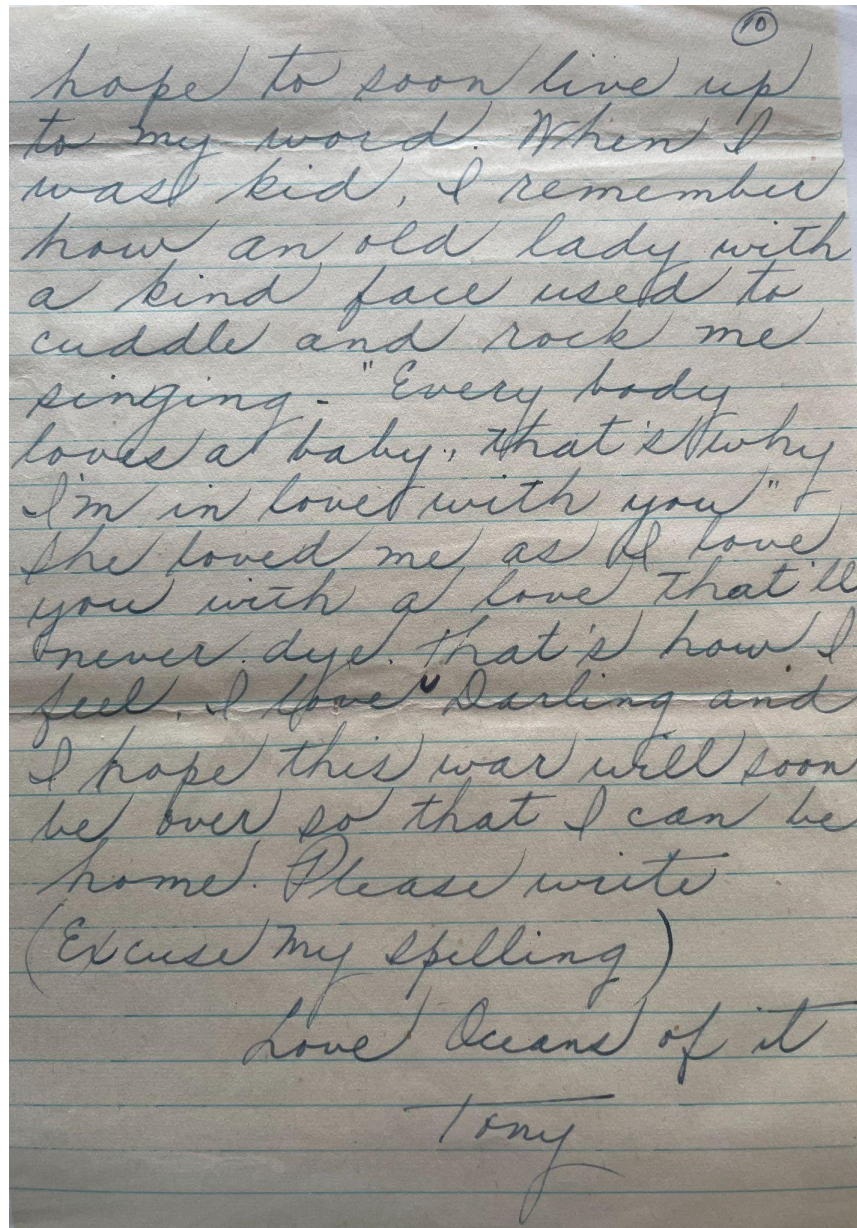 10
hope to soon live up
to my word. When I
was kid, I remember
how an old lady with
a kind face used to
cuddle and rock me
singing - "Every body
loves a baby, that's why
I'm in love with you"
She loved me as I love
you with a love that'll
never dye. That's how I
feel. I love U Darling and
I hope this war will soon
be over so that I can be
home. Please write
(Excuse my spelling)
Love Oceans of it
Tony